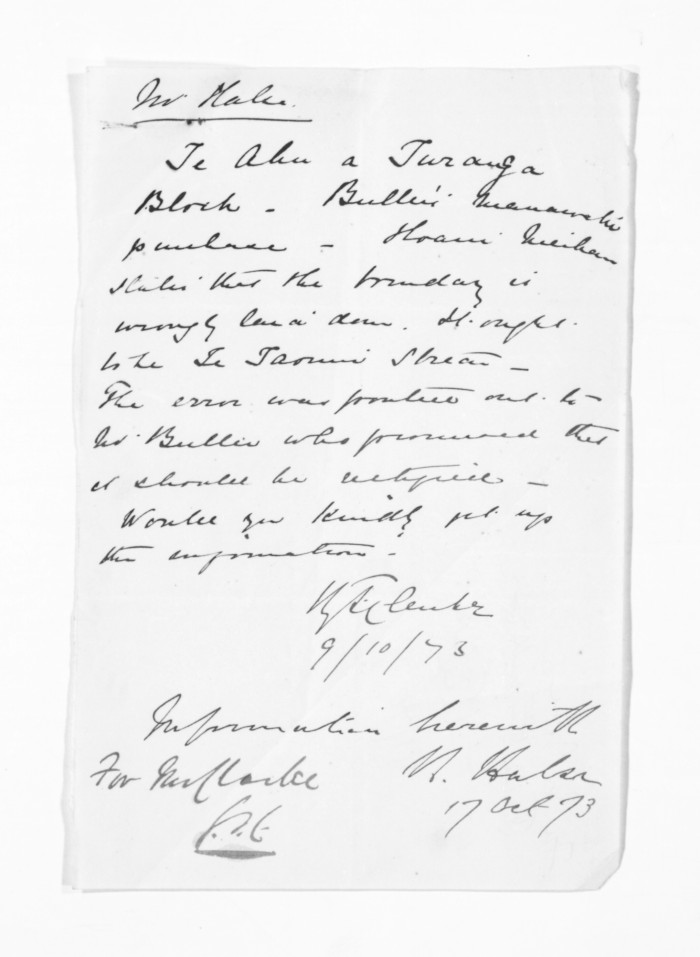 Mr Halse.
Te Ahu a Turanga
Block - Buller's Manawatu
purchase - Hoani Meihana
states that the boundary is
wrongly laid down. It ought
to be Te Taonui Stream -
The error was pointed out to
Mr Buller who promised that
it should be rectified -
Would you kindly get up
the information.
Clarke
9/10/73
Information herewith
For Mr Clarke H. Halse
17 Oct 73